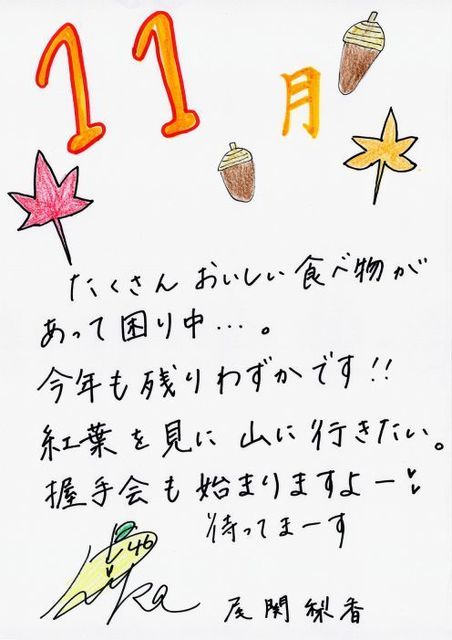 11月
たくさん おいしい 食べ物が
あって 困り中…。
今年も 残りわずかです!!
紅葉を見に 山に行きたい。
握手会も 始まりますよー♥
待ってまーす
46
Rika
尾関梨香